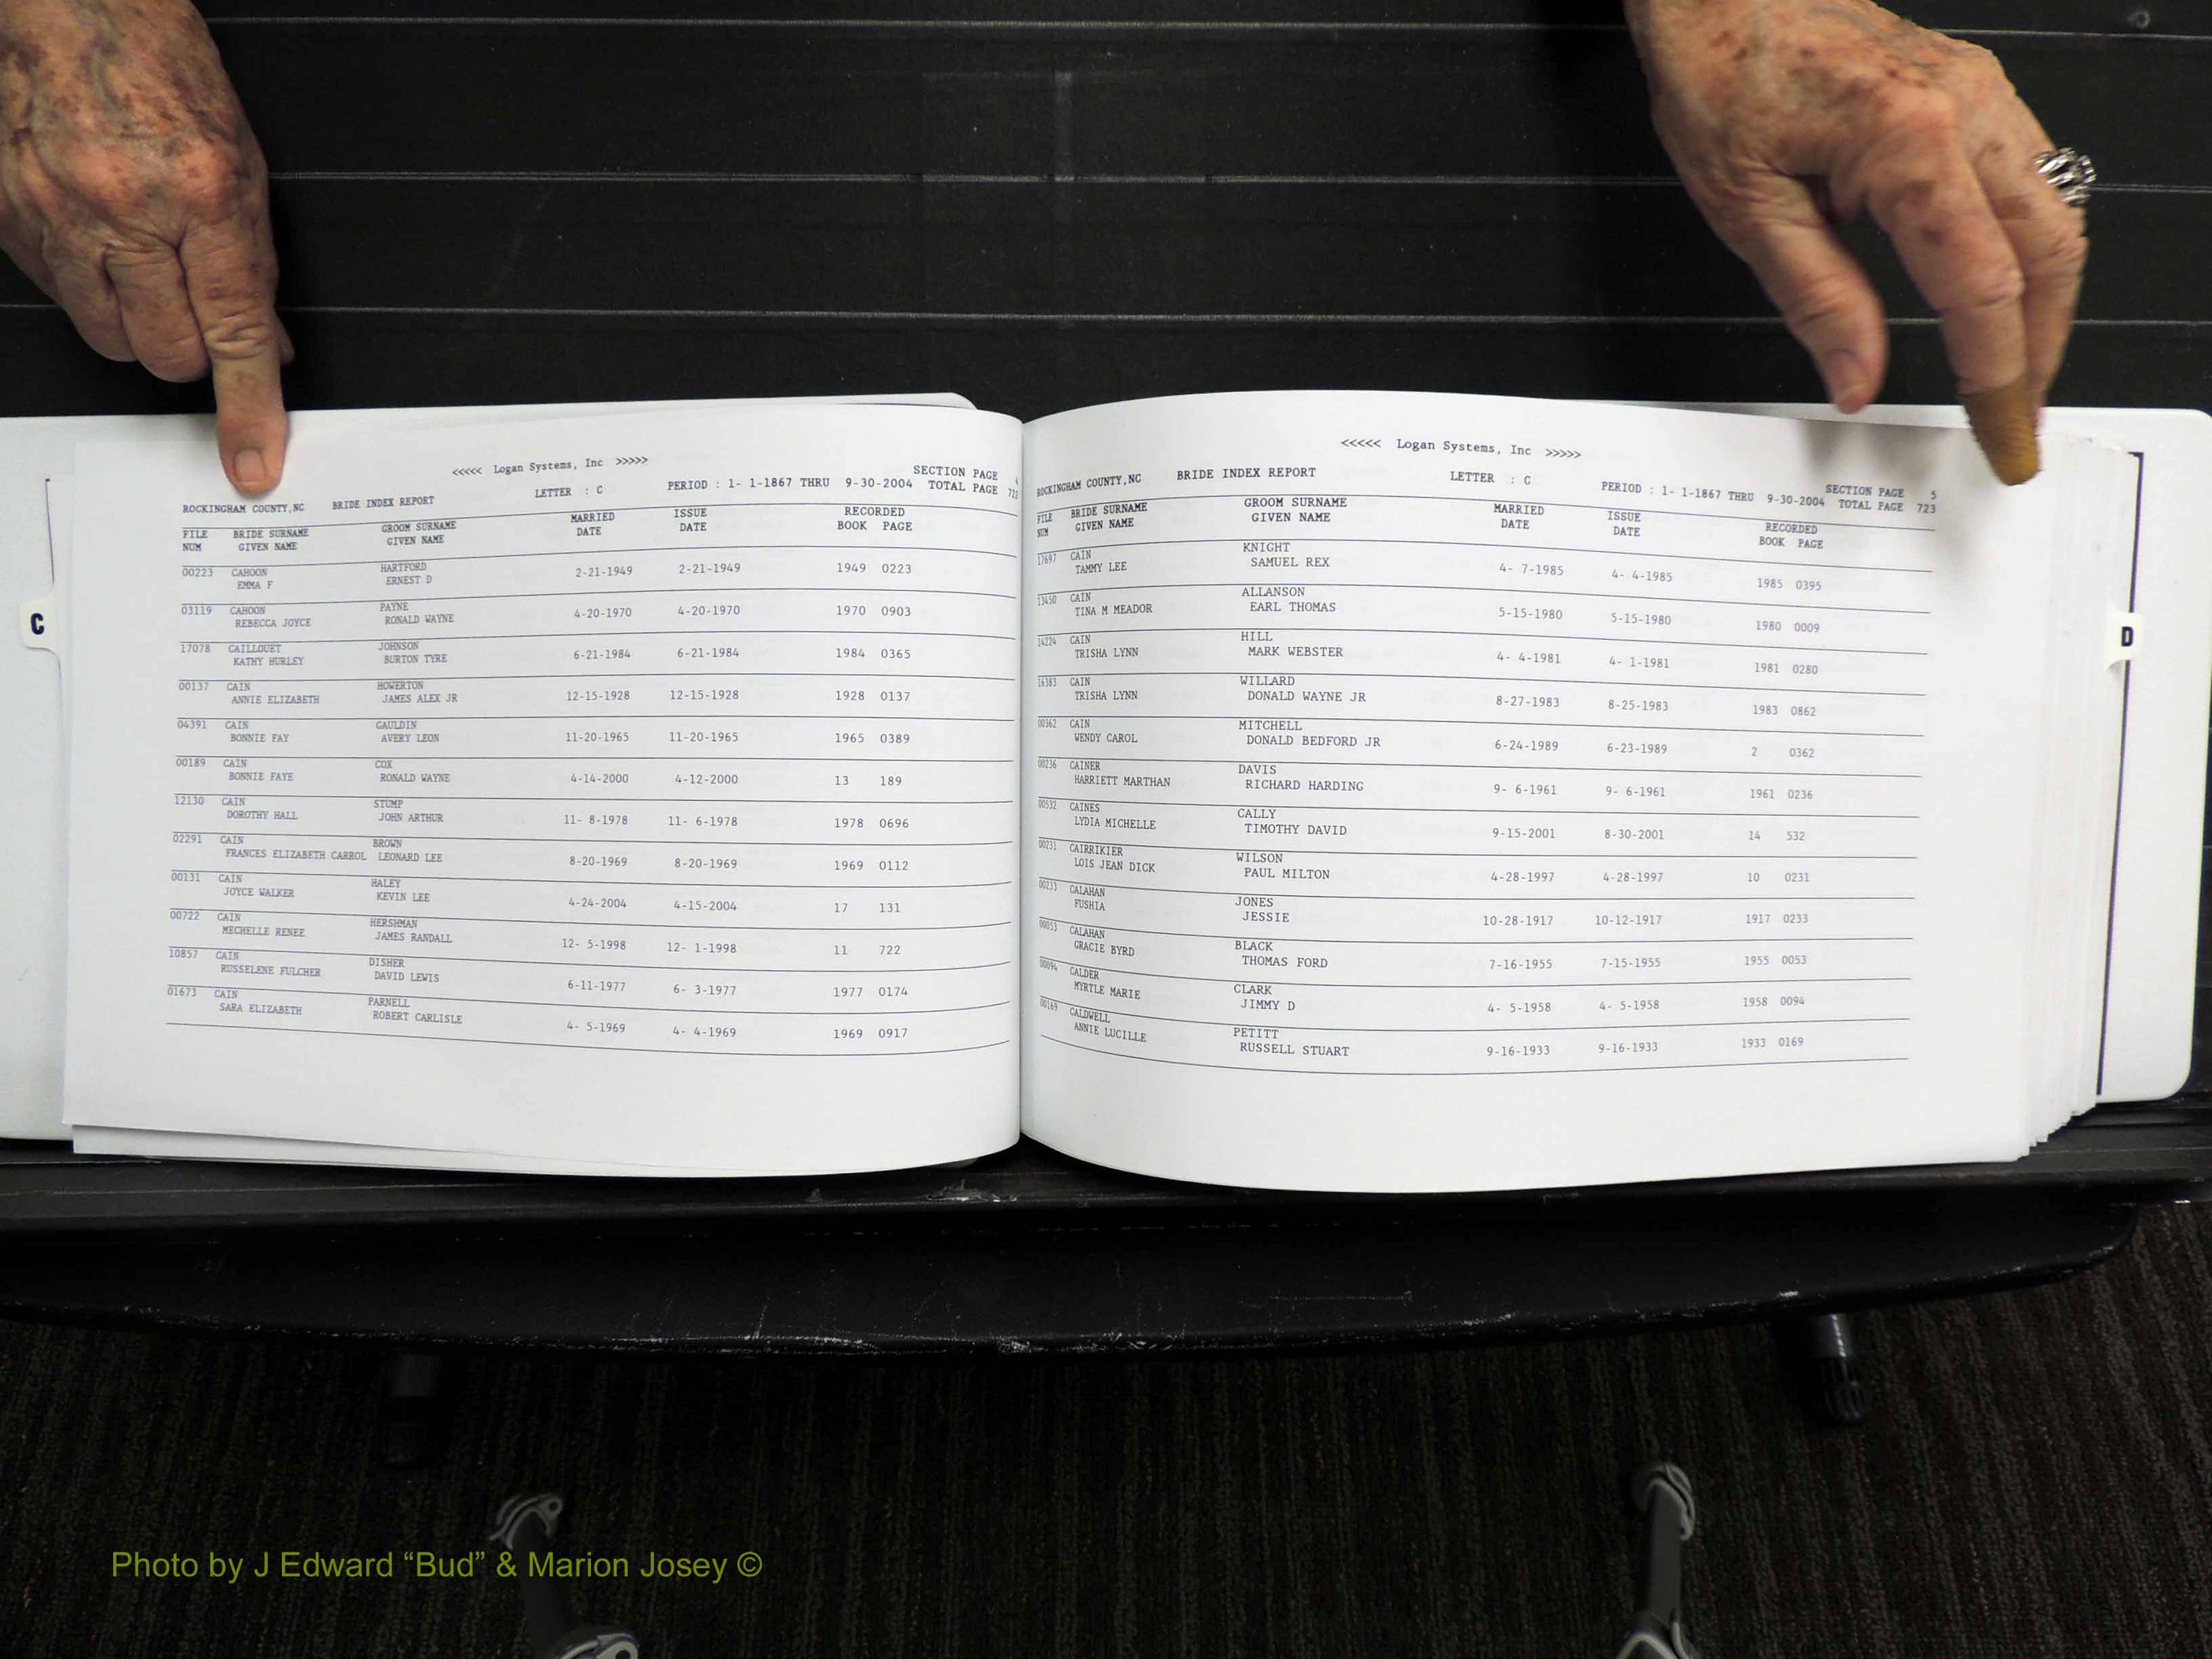 <<<<< Logan Systems, Inc >>>>>
ROCKINGHAM COUNTY,NC BRIDE INDEX REPORT LETTER : C PERIOD : 1- 1-1867 THRU 9-30-2004 SECTION PAGE
TOTAL PAGE
FILE BRIDE SURNAME GROOM SURNAME MARRIED ISSUE RECORDED
NUM GIVEN NAME GIVEN NAME DATE DATE BOOK PAGE
00223 CAHOON HARTFORD
EMMA F ERNEST D 2-21-1949 2-21-1949 1949 0223
03119 CAHOON PAYNE
REBECCA JOYCE RONALD WAYNE 4-20-1970 4-20-1970 1970 0903
17078 CAILLOUET JOHNSON
KATHY HURLEY BURTON TYRE 6-21-1984 6-21-1984 1984 0365
00137 CAIN HOWERTON
ANNIE ELIZABETH JAMES ALEX JR 12-15-1928 12-15-1928 1928 0137
04391 CAIN GAULDIN
BONNIE FAY AVERY LEON 11-20-1965 11-20-1965 1965 0389
00189 CAIN COX
BONNIE FAYE RONALD WAYNE 4-14-2000 4-12-2000 13 189
12130 CAIN STUMP
DOROTHY HALL JOHN ARTHUR 11- 8-1978 11- 6-1978 1978 0696
02291 CAIN BROWN
FRANCES ELIZABETH CARROL LEONARD LEE 8-20-1969 8-20-1969 1969 0112
00131 CAIN HALEY
JOYCE WALKER KEVIN LEE 4-24-2004 4-15-2004 17 131
00722 CAIN HERSHMAN
MECHELLE RENEE JAMES RANDALL 12- 5-1998 12- 1-1998 11 722
10857 CAIN DISHER
RUSSELENE FULCHER DAVID LEWIS 6-11-1977 6- 3-1977 1977 0174
01673 CAIN PARNELL
SARA ELIZABETH ROBERT CARLISLE 4- 5-1969 4- 4-1969 1969 0917
C
<<<<< Logan Systems, Inc >>>>>
ROCKINGHAM COUNTY,NC BRIDE INDEX REPORT LETTER : C PERIOD : 1- 1-1867 THRU 9-30-2004 SECTION PAGE 5
TOTAL PAGE 723
FILE BRIDE SURNAME GROOM SURNAME MARRIED ISSUE RECORDED
NUM GIVEN NAME GIVEN NAME DATE DATE BOOK PAGE
17697 CAIN KNIGHT
TAMMY LEE SAMUEL REX 4- 7-1985 4- 4-1985 1985 0395
13450 CAIN ALLANSON
TINA M MEADOR EARL THOMAS 5-15-1980 5-15-1980 1980 0009
14224 CAIN HILL
TRISHA LYNN MARK WEBSTER 4- 4-1981 4- 1-1981 1981 0280
16383 CAIN WILLARD
TRISHA LYNN DONALD WAYNE JR 8-27-1983 8-25-1983 1983 0862
00362 CAIN MITCHELL
WENDY CAROL DONALD BEDFORD JR 6-24-1989 6-23-1989 2 0362
00236 CAINER DAVIS
HARRIETT MARTHAN RICHARD HARDING 9- 6-1961 9- 6-1961 1961 0236
00532 CAINES CALLY
LYDIA MICHELLE TIMOTHY DAVID 9-15-2001 8-30-2001 14 532
00231 CAIRRIKIER WILSON
LOIS JEAN DICK PAUL MILTON 4-28-1997 4-28-1997 10 0231
00233 CALAHAN JONES
FUSHIA JESSIE 10-28-1917 10-12-1917 1917 0233
00053 CALAHAN BLACK
GRACIE BYRD THOMAS FORD 7-16-1955 7-15-1955 1955 0053
00094 CALDER CLARK
MYRTLE MARIE JIMMY D 4- 5-1958 4- 5-1958 1958 0094
00169 CALDWELL PETITT
ANNIE LUCILLE RUSSELL STUART 9-16-1933 9-16-1933 1933 0169
D
Photo by J Edward “Bud” & Marion Josey ©